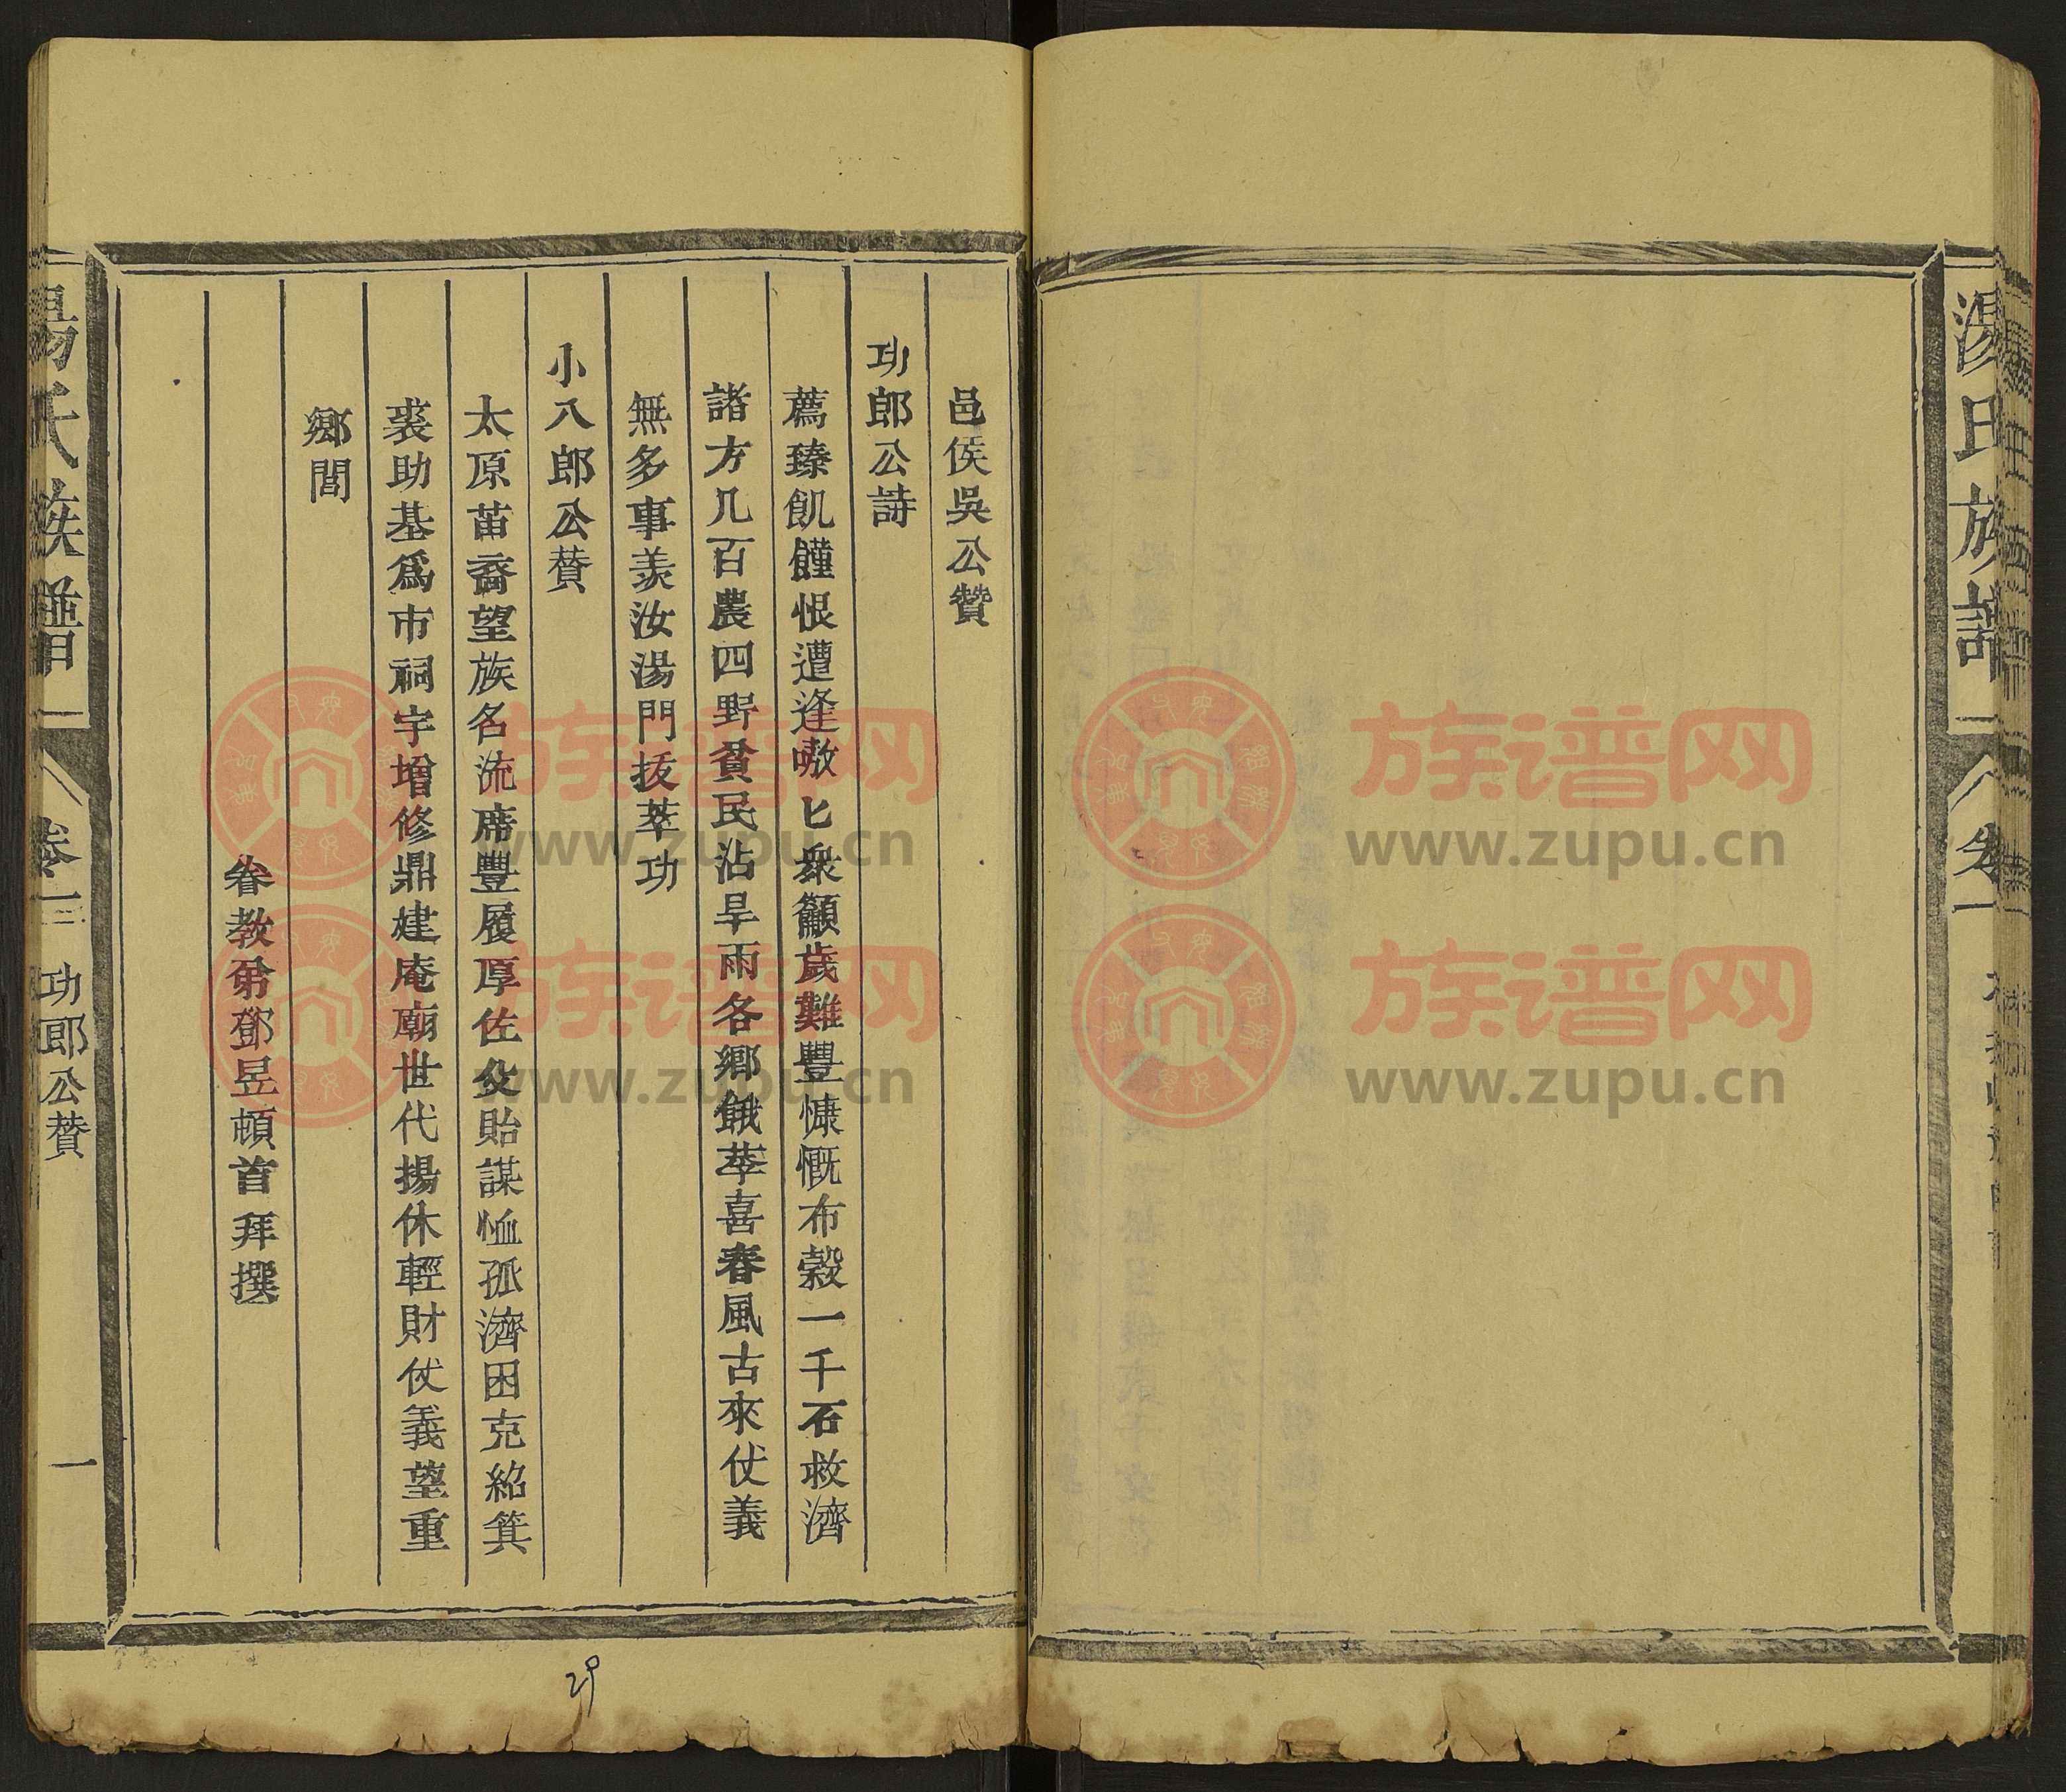 湯氏族譜
卷一
邑侯吳公贊
功郎公詩
薦臻飢饉恨遭逢嗷匕衆籲歲難豐慷慨布穀一千石救濟
諸方几百農四野貧民沾旱雨各鄉餓莩喜春風古來仗義
無多事羨汝湯門拔萃功
小八郎公贊
太原苗裔望族名流席豐履厚佐父貽謀恤孤濟困克紹箕
裘助基為市祠宇增修鼎建庵廟世代揚休輕財仗義望重
鄉閭
眷教弟鄧昱頓首拜撰
湯氏族譜
卷一
功郎公贊
一
29
族谱网
www.zupu.cn
族谱网
www.zupu.cn
族谱网
www.zupu.cn
族谱网
www.zupu.cn